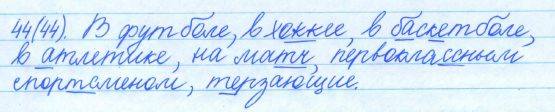 44(44). В футболе, в хоккее, в баскетболе,
в атлетике, на матч, первоклассным
спортсменом, терзающие.